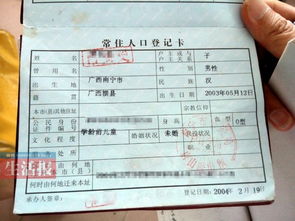 常住人口登记卡
姓名 户主或与户主关系 子
曾用名 性别 男性
出生地 广西南宁市 民族 汉
籍贯 广西横县 出生日期 2003年05月12日
本市(县)其他住址 宗教信仰
公民身份证件编号 身高 血型 O型
文化程度 学龄前儿童 婚姻状况 未婚 兵役状况
服务处所 职业
何时由何地迁来本市(县)
何时由何地迁来本址
承办人签章: 登记日期: 2004年2月19日
生活报